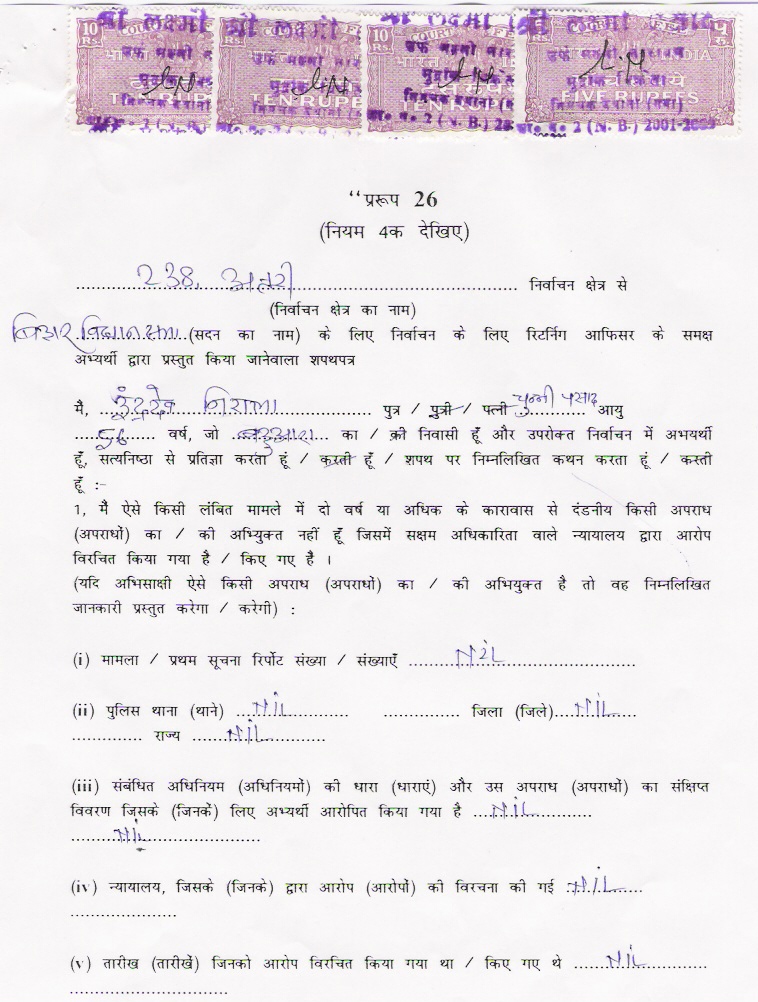 10 Rs. COURT FEE
TEN RUPEES
FIVE RUPEES
श्री लक्ष्मी
2 (N. B.) 2001-
“प्ररूप 26
(नियम 4क देखिए)
238, अतरी निर्वाचन क्षेत्र से
(निर्वाचन क्षेत्र का नाम)
बिहार विधान सभा (सदन का नाम) के लिए निर्वाचन के लिए रिटर्निग आफिसर के समक्ष
अभ्यर्थी द्वारा प्रस्तुत किया जानेवाला शपथपत्र
मै, ईंद्रदेव निराला पुत्र / पुत्री / पत्नी चुन्नी प्रसाद आयु
56 वर्ष, जो का / की निवासी हूँ और उपरोक्त निर्वाचन में अभयर्थी
हूँ, सत्यनिष्ठा से प्रतिज्ञा करता हूं / करती हूँ / शपथ पर निम्नलिखित कथन करता हूं / करती
हूँ :-
1, मैं ऐसे किसी लंबित मामले में दो वर्ष या अधिक के कारावास से दंडनीय किसी अपराध
(अपराधों) का / की अभियुक्त नहीं हूँ जिसमें सक्षम अधिकारिता वाले न्यायालय द्वारा आरोप
विरचित किया गया है / किए गए है ।
(यदि अभिसाक्षी ऐसे किसी अपराध (अपराधों) का / की अभियुक्त है तो वह निम्नलिखित
जानकारी प्रस्तुत करेगा / करेगी) :
(i) मामला / प्रथम सूचना रिर्पोट संख्या / संख्याएँ NiL
(ii) पुलिस थाना (थाने) NiL जिला (जिले) NiL
राज्य NiL
(iii) संबंधित अधिनियम (अधिनियमों) की धारा (धाराएं) और उस अपराध (अपराधों) का संक्षिप्त
विवरण जिसके (जिनके) लिए अभ्यर्थी आरोपित किया गया है NiL
NiL
(iv) न्यायालय, जिसके (जिनके) द्वारा आरोप (आरोपों) की विरचना की गई NiL
(v) तारीख (तारीखें) जिनको आरोप विरचित किया गया था / किए गए थे NiL